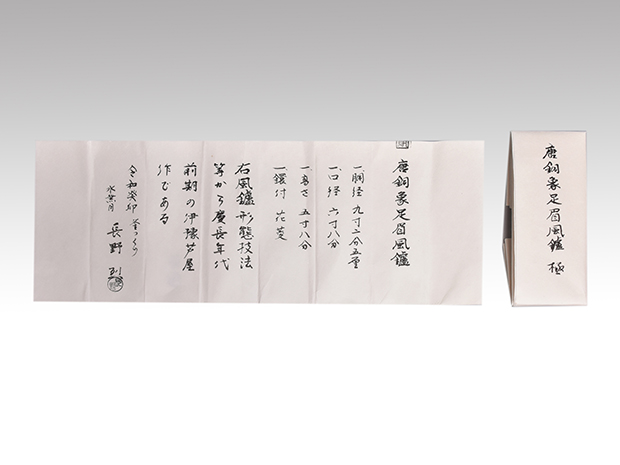 唐銅象足眉風鑪
一胴径 九寸二分五厘
一口径 六寸八分
一高さ 五寸八分
一鐶付 花菱
右風鑪形態技法
等から慶長年代
前期の伊豫芦屋
作である
令和癸卯 釜つくり
水無月 長野
唐銅象足眉風鑪 極